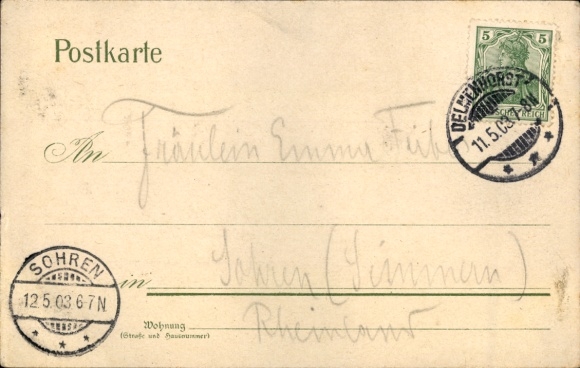 Postkarte
5 5
REICH
DELMENHORST
11.5.03.7-8N
An Fräulein Emma
SOHREN
12.5.03 6-7N
in Sohren (Simmern)
Rheinland
Wohnung
(Straße und Hausnummer)